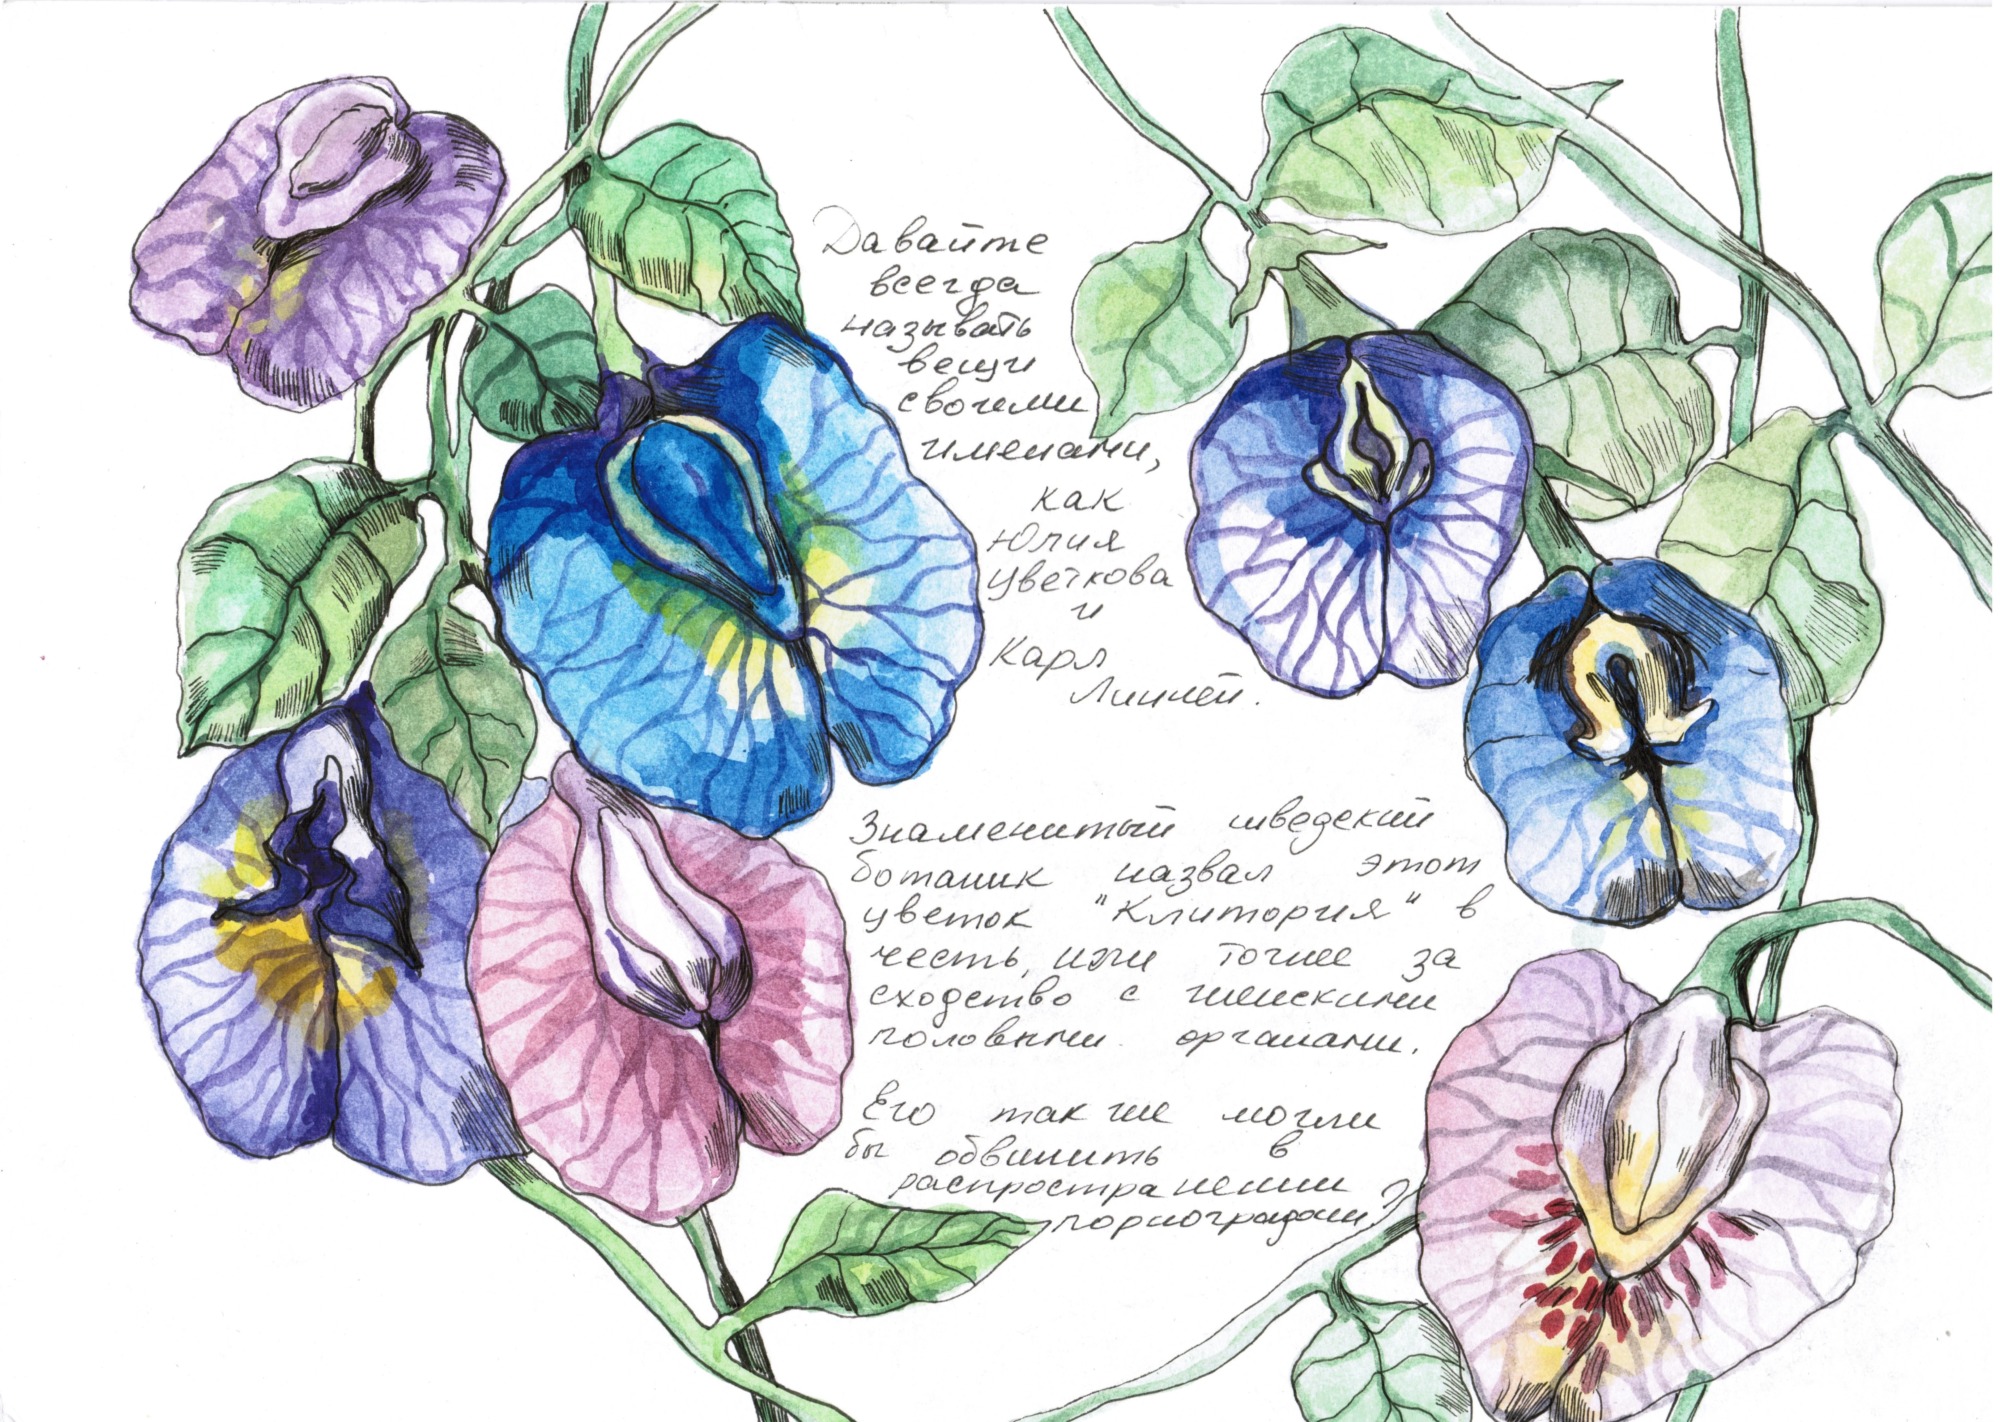 Давайте
всегда
называть
вещи
своими
именами,
как
Юлия
Цветкова
и
Карл
Линней.
Знаменитый шведский
ботаник назвал этот
цветок "Клитория" в
честь, или точнее за
сходство с женскими
половыми органами.
Его так же могли
бы обвинить в
распространении
порнографии?